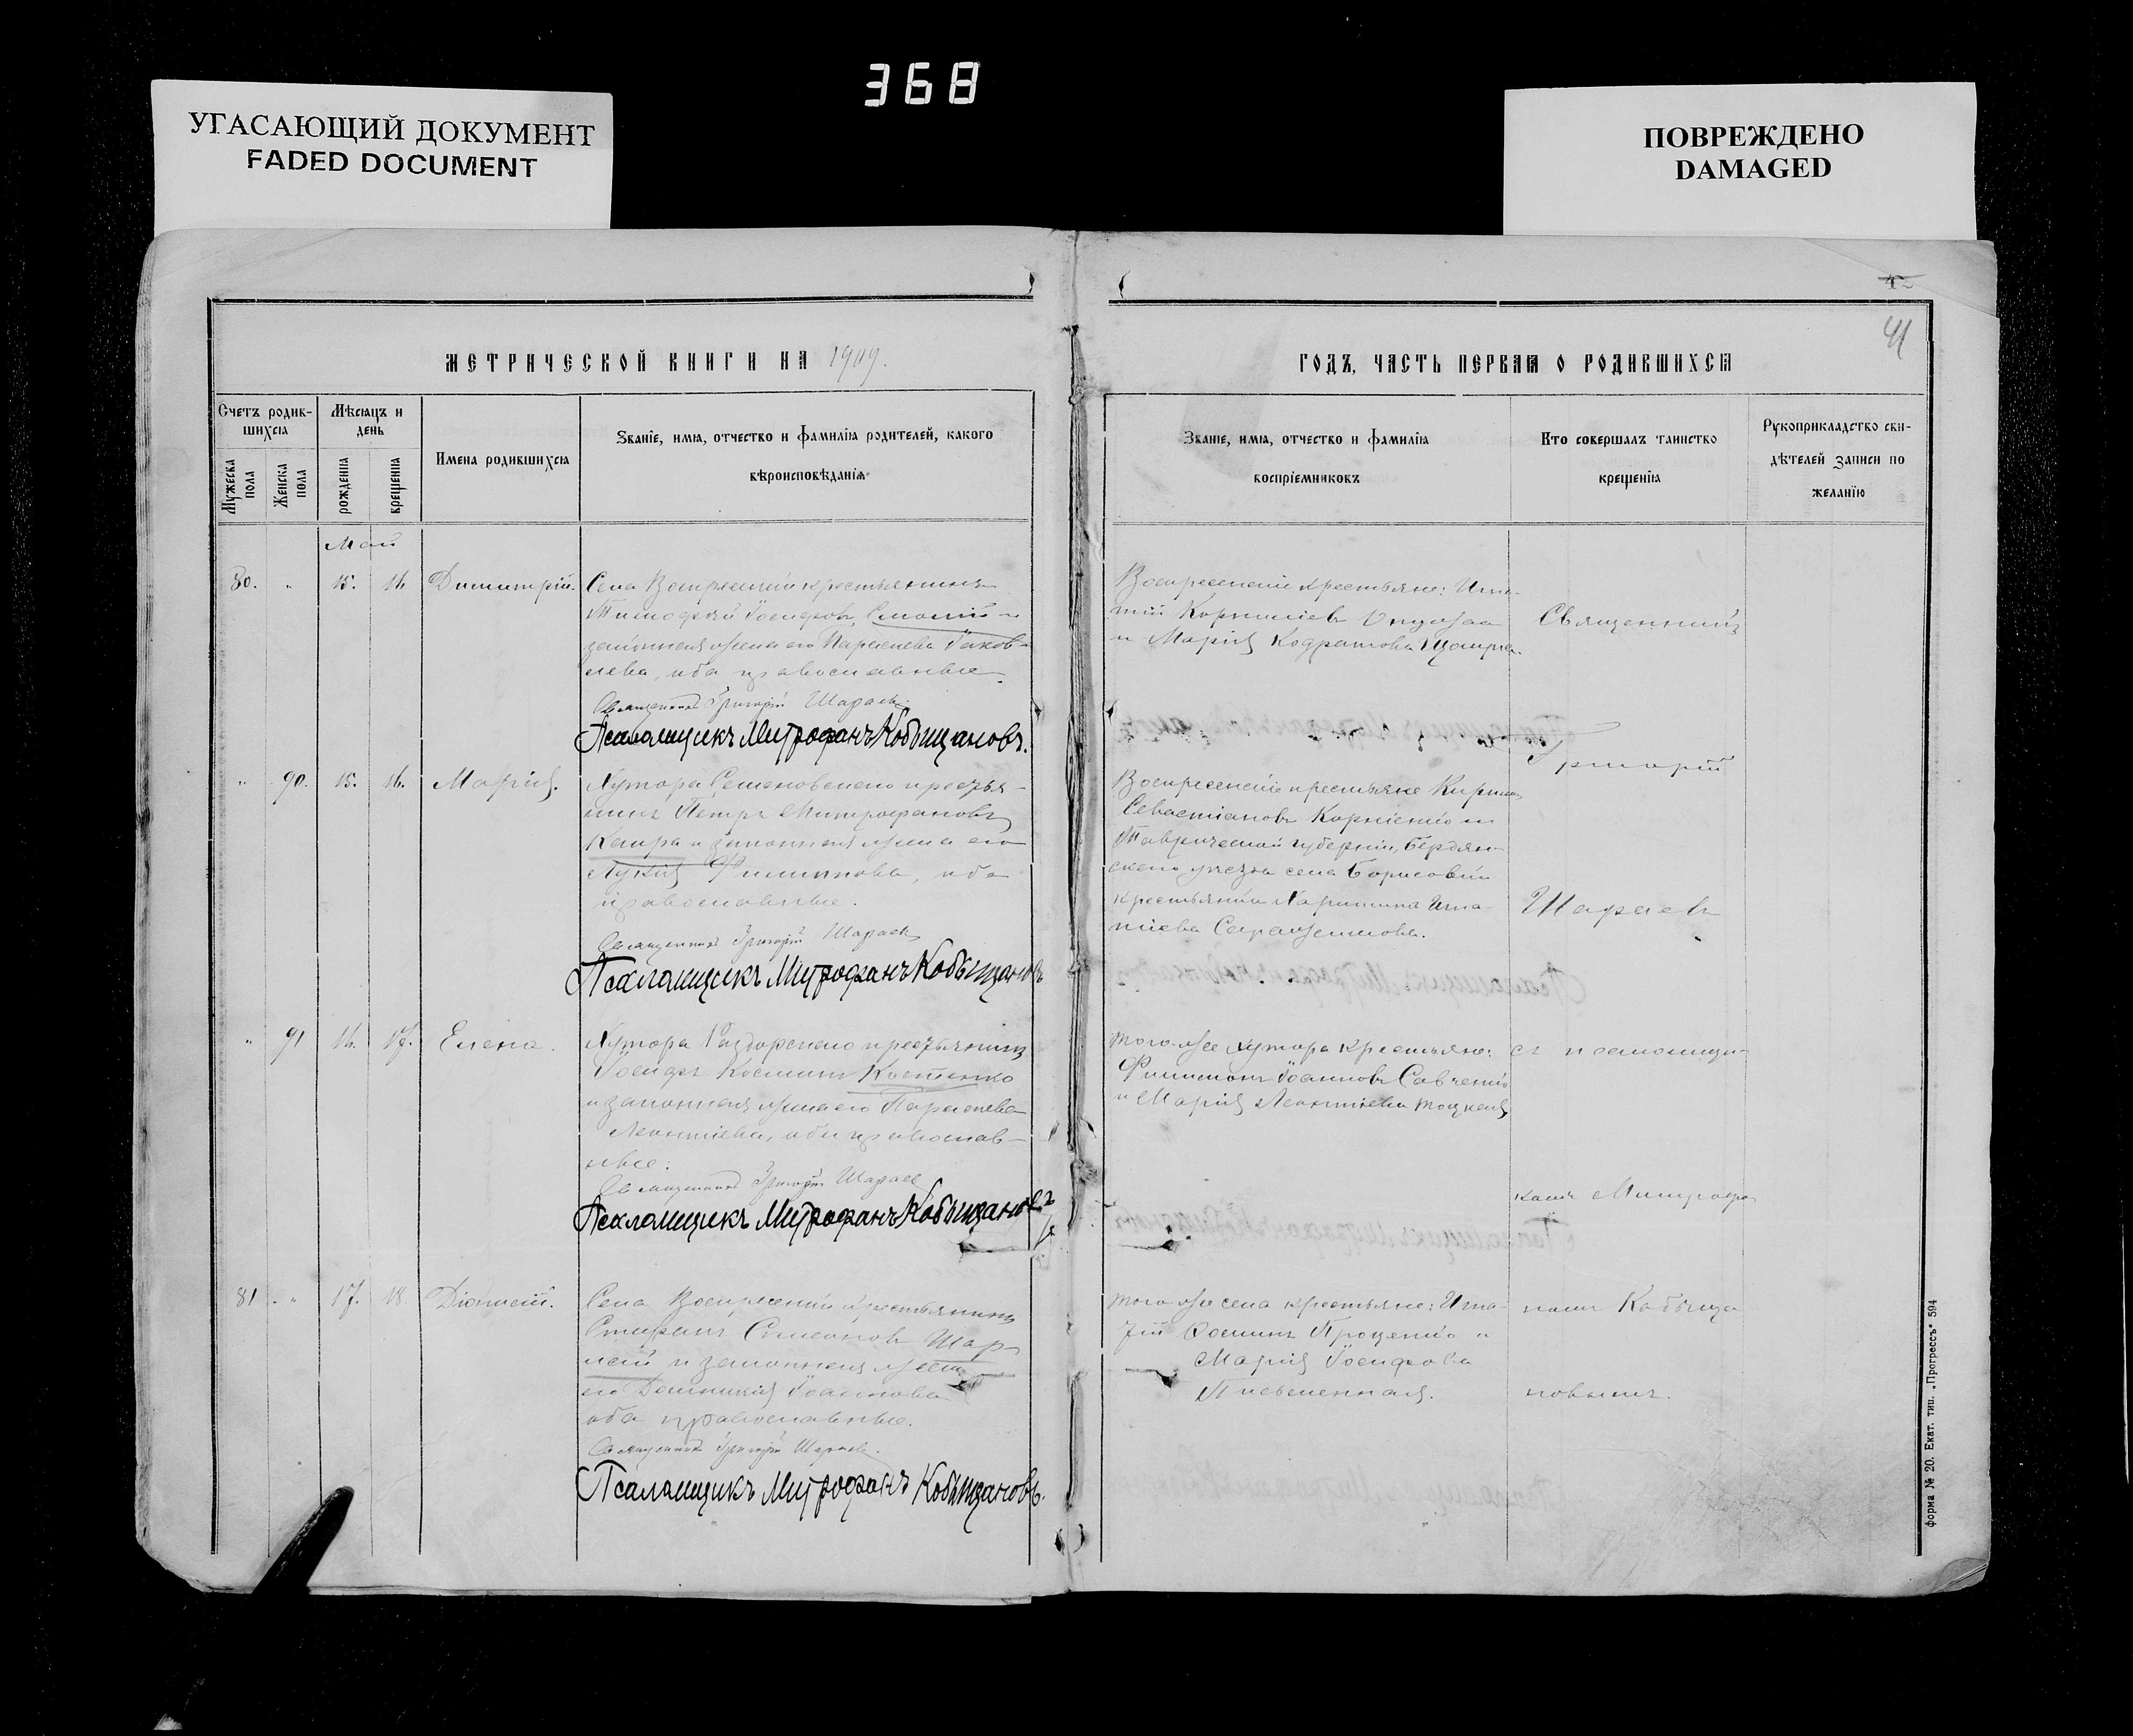 368
УГАСАЮЩИЙ ДОКУМЕНТ
FADED DOCUMENT
ПОВРЕЖДЕНО
DAMAGED
41
МЕТРИЧЕСКОЙ КНИГИ НА 1909.
ГОДЪ, ЧАСТЬ ПЕРВАЯ О РОДИВШИХСЯ
Счетъ родив-
шихся
Мужеска пола
Женска пола
Мѣсяцъ и
день
рожденія
крещенія
Имена родившихся
Званіе, имя, отчество и фамилія родителей, какого
вѣроисповѣданія
Званіе, имя, отчество и фамилія
воспріемниковъ
Кто совершалъ таинство
крещенія
Рукоприкладство сви-
дѣтелей записи по
желанію
Май
80. " 15. 16. Димитрій.
Села Воскресенки крестьянинъ
Тимофей Іосифовъ и
законная жена его Параскева Іаков-
лева, оба православные.
Священникъ Григорій Шараевъ
Псаломщикъ Митрофанъ Кобыщановъ.
Воскресенскіе крестьяне: Игна-
тій
и Марія Кодратова
" 90. 15. 16. Марія.
Хутора Семеновскаго крестья-
нинъ Петръ Митрофановъ
Каира и законная жена его
Лукія Филиппова, оба
православные.
Священникъ Григорій Шараевъ
Псаломщикъ Митрофанъ Кобыщановъ
Воскресенскіе крестьяне
Севастіановъ Корніенко и
Таврической губерніи, Бердян-
скаго уѣзда села Борисовки
Игна-
тіева
" 91 16. 17. Елена.
Хутора Раздорскаго крестьянинъ
Іосифъ Косминъ Костенко
и законная жена его Параскева
Леонтіева, оба православ-
ные.
Священникъ Григорій Шараевъ
Псаломщикъ Митрофанъ Кобыщановъ
того-же хутора крестьяне:
Филимонъ Іоанновъ Савченко
и Марія Леонтіева Тоцкая
81 " 17. 18 Діонисій.
Села Воскресенки крестьянинъ
Стефанъ Симеоновъ
и законная жена
его Домникія Іоаннова
оба православные.
Священникъ Григорій Шараевъ.
Псаломщикъ Митрофанъ Кобыщановъ.
того же села крестьяне: Игна-
тій Косминъ Проценко и
Марія Іосифова
Письменная.
Священникъ
Григорій
Шараевъ
съ псаломщи-
комъ Митрофа-
номъ Кобыща-
новымъ.
Форма № 20. Екат. тип. „Прогрессъ“ 594